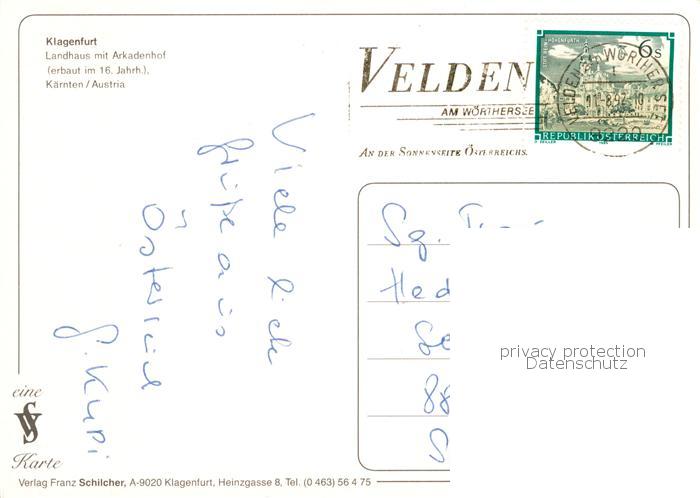 Klagenfurt
Landhaus mit Arkadenhof
(erbaut im 16. Jahrh.),
Kärnten / Austria
VELDEN
AM WÖRTHERSEE
AN DER SONNENSEITE ÖSTERREICHS.
6 S
REPUBLIK ÖSTERREICH
VELDEN AM WÖRTHER SEE
Viele liebe
Grüße aus
Österreich
Hed
88
privacy protection
Datenschutz
eine
Karte
Verlag Franz Schilcher, A-9020 Klagenfurt, Heinzgasse 8, Tel. (0 463) 56 4 75